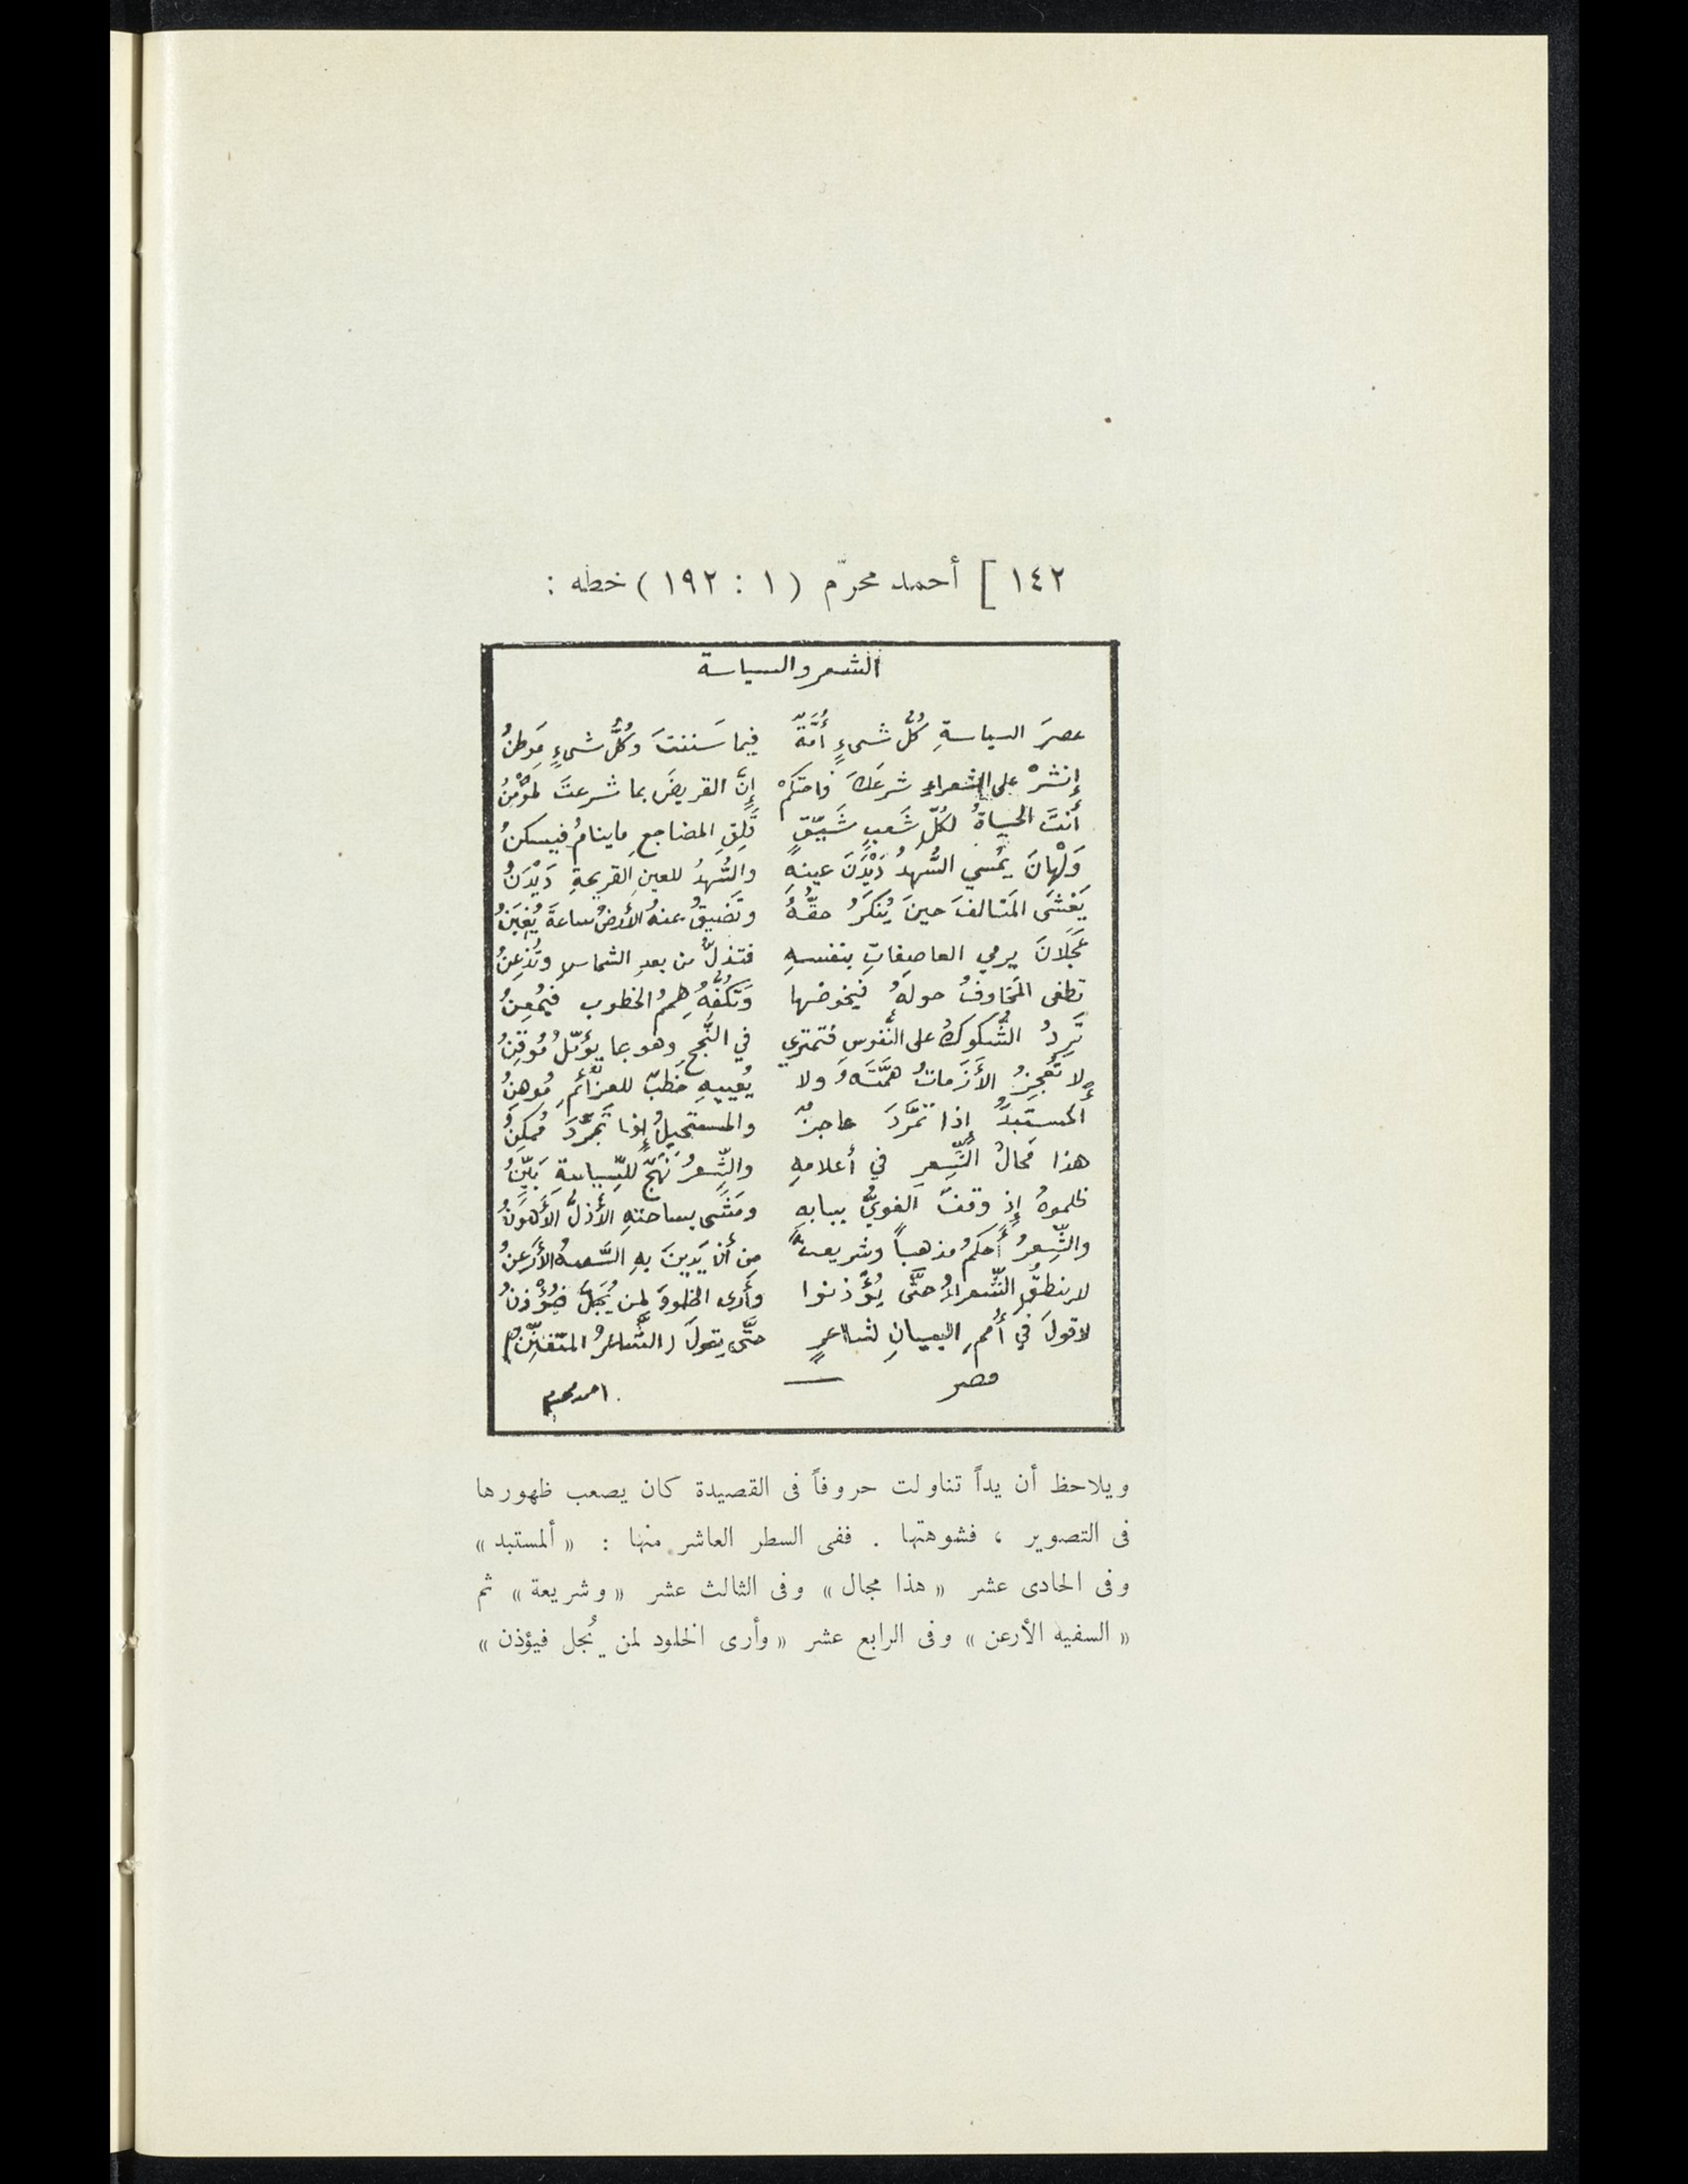 ١٤٢ ] أحمد محرّم ( ١ : ١٩٢ ) خطه :
الشعر والسياسة
عصرَ السياسةِ كُلُّ شىءٍ أُمَّةٌ فيما سَننتَ وكُلُّ شىءٍ مَوطنُ
إنشرْ على الشعراءِ شرعَكَ واحتكمْ إنَّ القريضَ بما شرعتَ لمؤمنُ
أنتَ الحياةُ لكُلِّ شَعبٍ شَيّقٍ قَلِقِ المضاجعِ ماينامُ فيسكنُ
وَلْهانَ يمُسي السُّهدُ دَيْدَنَ عينهِ والسُّهدُ للعينِ القريحةِ دَيْدَنُ
يَغشَى المَتالفَ حينَ يُنكَرُ حقُّهُ وتَضيقُ عنهُ الأرضُ ساعةَ يُغبَنُ
عَجَلانَ يرمي العاصِفاتِ بنفسهِ فتذلُّ من بعدِ الشماسِ وتُذعِنُ
تطغى المَخاوفُ حولهُ فيخوضها وَتَكُفُّهُ هِممُ الخطوب فيُمعِنُ
تَرِدُ الشُّكوكُ على النُّفوسِ فتمتري في النُّجحِ وهو بما يؤمّلُ مُوقِنُ
لا تُعجِزُ الأَزَماتُ همَّتَهُ ولا يُعييهِ خَطبٌ للعزائمِ مُوهِنُ
المستَبدُّ إذا تمَّردَ عاجزٌ والمستحيلُ إذا تَجرَّدَ مُمكِنُ
هذا مَحالُ الشِّعرِ في أعلامهِ والشِّعرُ نَهجٌ للسِّياسةِ بَيِّنُ
ظلموهُ إذ وقفَ الغويُّ ببابهِ ومَشَى بساحتهِ الأذلُّ الأَهوَنُ
والشِّعرُ أحكَمُ مذهباً وشريعةً مِن أن يَدِينَ بهِ السَّفيهُ الأَرعنُ
لا ينطقُ الشُّعراءُ حتَّى يُؤْذنوا وأَرى الخلودَ لمن يُجَلُّ فيُؤْذنُ
لا قولَ في أُممِ البيانِ لشاعرٍ حتَّى يقولَ (الشَّاعرُ المتفنِّنُ)
مصر
احمد محرم
ويلاحظ أن يداً تناولت حروفاً فى القصيدة كان يصعب ظهورها
فى التصوير ، فشوهتها . ففى السطر العاشر منها : « ألمستبد »
وفى الحادى عشر « هذا مجال » وفى الثالث عشر « وشريعة » ثم
« السفيه الأرعن » وفى الرابع عشر « وأرى الخلود لمن يُجل فيؤذن »